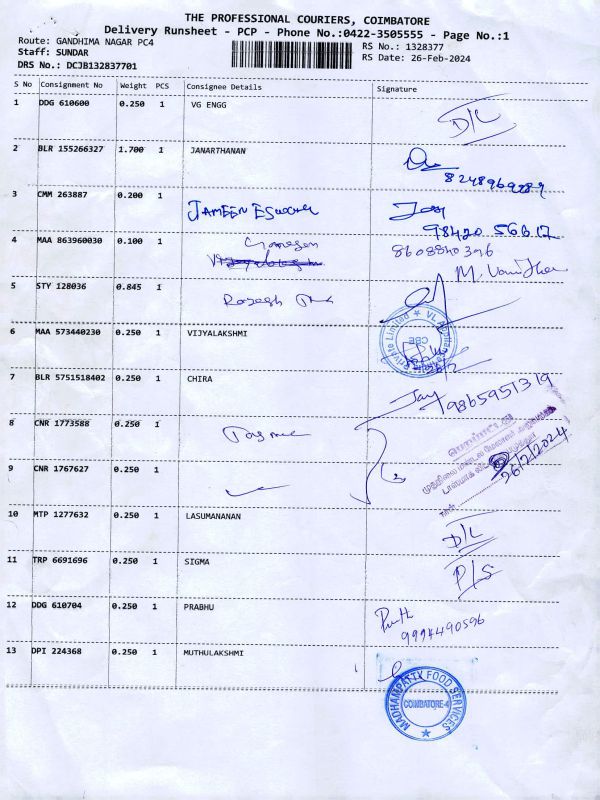 THE PROFESSIONAL COURIERS, COIMBATORE
Delivery Runsheet - PCP - Phone No.:0422-3505555 - Page No.:1
Route: GANDHIMA NAGAR PC4
Staff: SUNDAR
DRS No.: DCJB132837701
RS No.: 1328377
RS Date: 26-Feb-2024
S No Consignment No Weight PCS Consignee Details Signature
1 DDG 610600 0.250 1 VG ENGG D/L
2 BLR 155266327 1.700 1 JANARTHANAN
8248969289
3 CMM 263887 0.200 1 JAMEEN
98420 56612
4 MAA 863960030 0.100 1
8608840396
5 STY 128036 0.845 1
VL Private Limited CBE
6 MAA 573440230 0.250 1 VIJYALAKSHMI
7 BLR 5751518402 0.250 1 CHIRA
9865951319
8 CNR 1773588 0.250 1
26/2/2024
9 CNR 1767627 0.250 1
10 MTP 1277632 0.250 1 LASUMANANAN D/L
11 TRP 6691696 0.250 1 SIGMA P/S
12 DDG 610704 0.250 1 PRABHU
9994490596
13 DPI 224368 0.250 1 MUTHULAKSHMI
MADHAMPATTY FOOD SERVICES
COIMBATORE-4